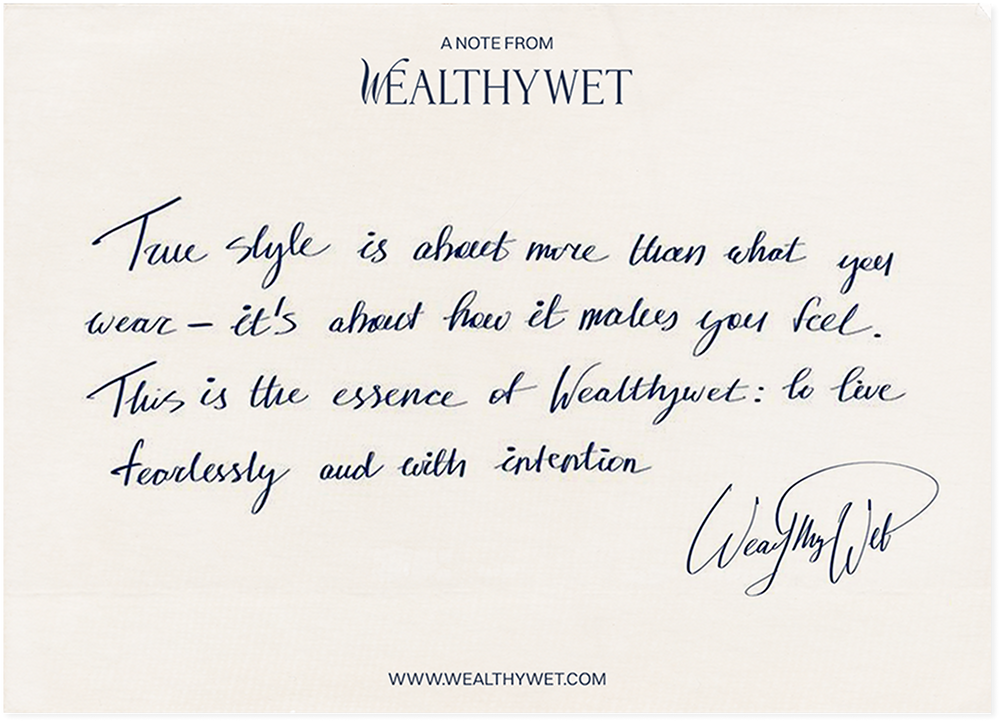 A NOTE FROM
WEALTHYWET
True style is about more than what you
wear – it's about how it makes you feel.
This is the essence of Wealthywet: to live
fearlessly and with intention
WealthyWet
WWW.WEALTHYWET.COM